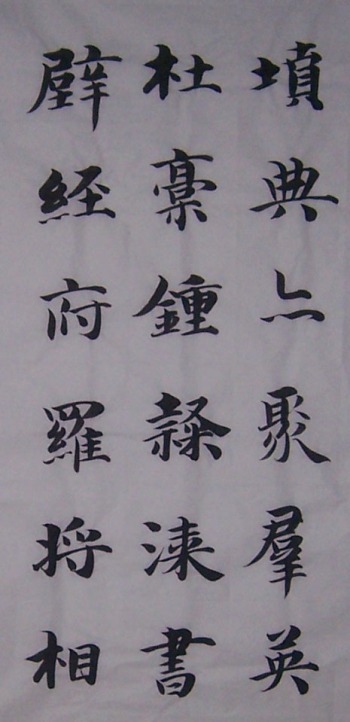 墳典亦聚羣英
杜稾鍾隸漆書
壁經府羅將相